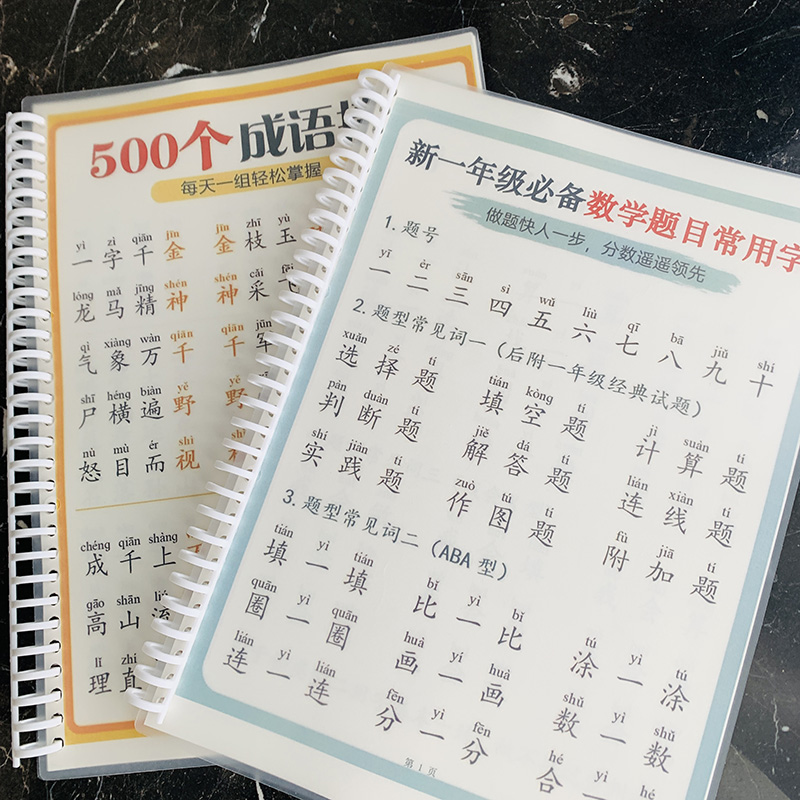 500个成语
每天一组轻松掌握
yì zì qiān jīn jīn zhī yù
一字千金 金枝玉
lóng mǎ jīng shén shén cǎi fēi
龙马精神 神采飞
qì xiàng wàn qiān qiān jūn
气象万千 千军
shī héng biàn yě yě
尸横遍野 野
nù mù ér shì
怒目而视
chéng qiān shàng
成千上
gāo shān liú
高山流
lǐ zhí
理直
新一年级必备数学题目常用字
做题快人一步，分数遥遥领先
1.题号
yī èr sān sì wǔ liù qī bā jiǔ shí
一 二 三 四 五 六 七 八 九 十
2.题型常见词一（后附一年级经典试题）
xuǎn zé tí tián kòng tí jì suàn tí
选择题 填空题 计算题
pàn duàn tí jiě dá tí lián xiàn tí
判断题 解答题 连线题
shí jiàn tí zuò tú tí fù jiā tí
实践题 作图题 附加题
3.题型常见词二（ABA型）
tián yi tián bǐ yi bǐ tú yi tú
填一填 比一比 涂一涂
quān yi quān huà yi huà shǔ yi shǔ
圈一圈 画一画 数一数
lián yi lián fēn yi fēn hé yi hé
连一连 分一分 合一
第 1 页